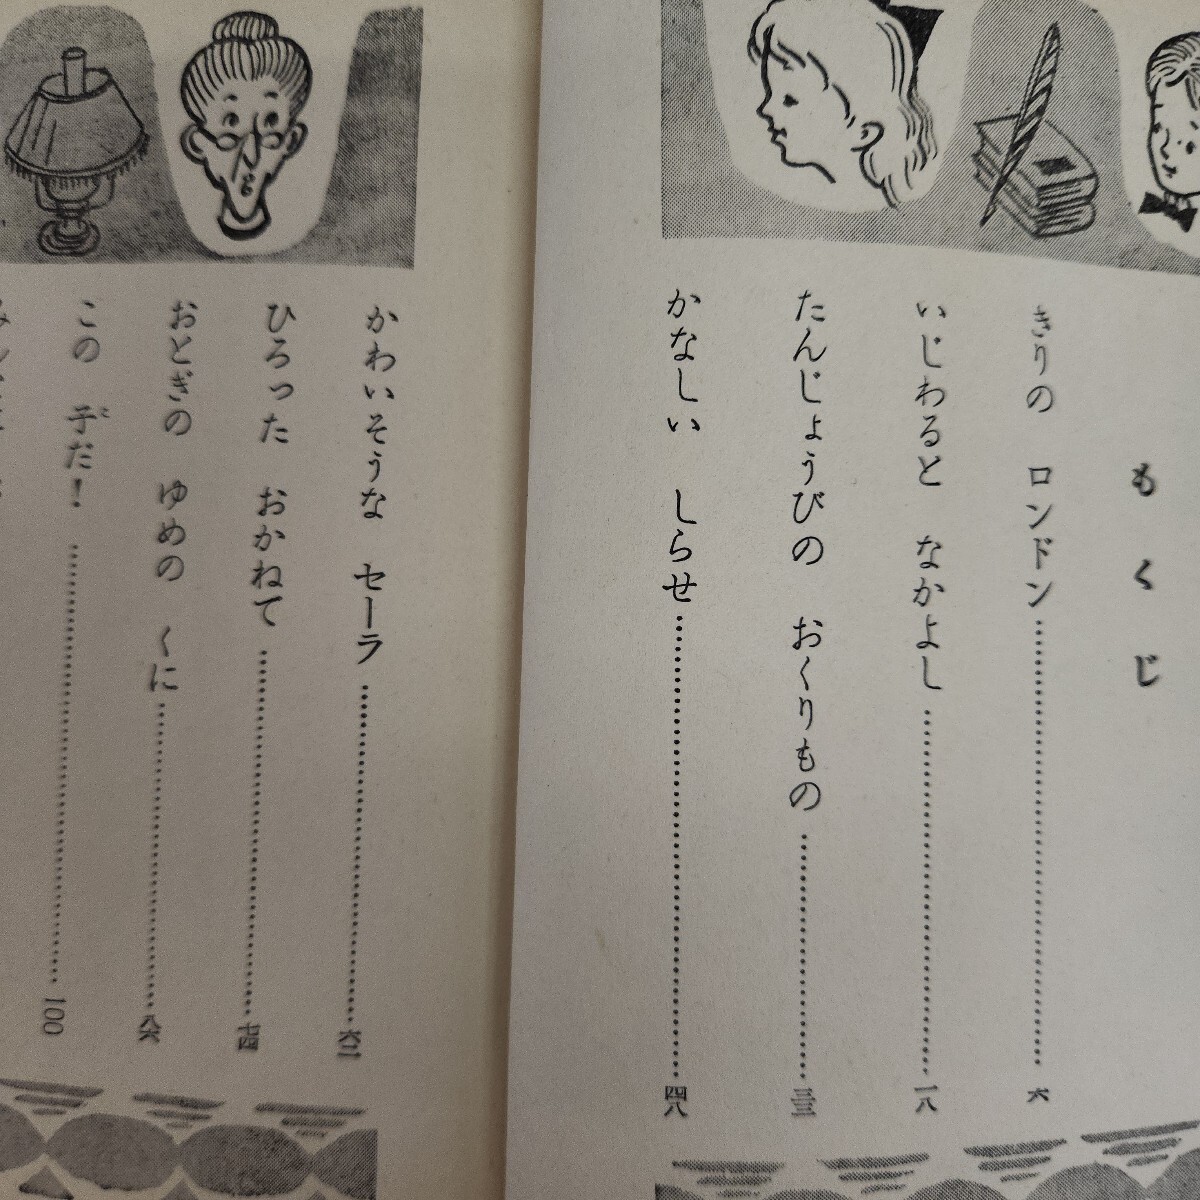 もくじ
きりの ロンドン……六
いじわると なかよし……一八
たんじょうびの おくりもの……三三
かなしい しらせ……四八
かわいそうな セーラ……六二
ひろった おかねて……七四
おとぎの ゆめの くに……八六
この 子だ!……100
こ